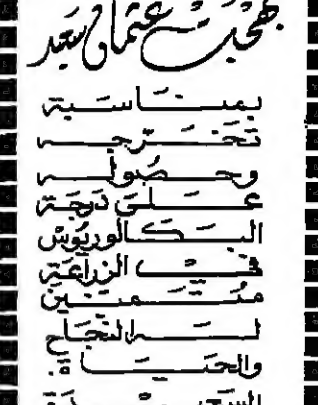 بهجت عثمان سعيد
بمناسبة
تخرجه
وحصوله
على دَرجة
البكالوريوس
في الزراعة
متمنين
له النجاح
والحياة
السعيدة